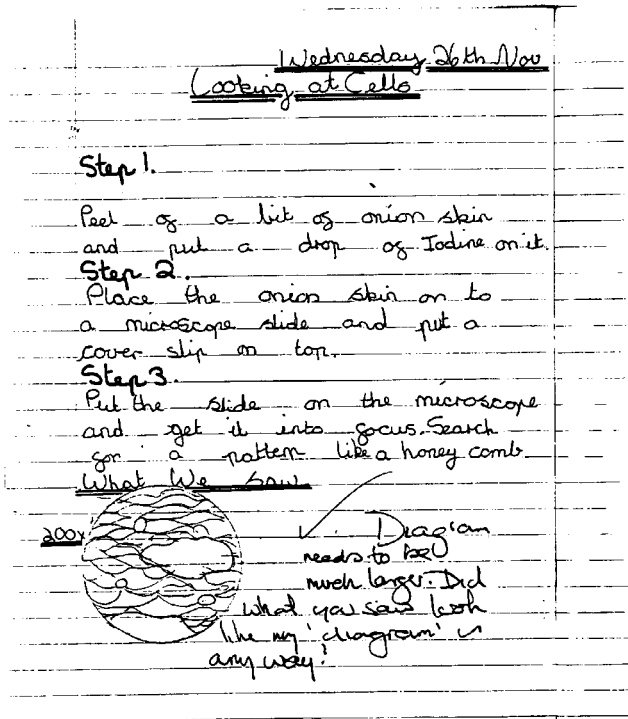 Wednesday 26th Nov
Looking at Cells
Step 1.
Peel of a bit of onion skin
and put a drop of Iodine on it.
Step 2.
Place the onion skin on to
a microscope slide and put a
cover slip on top.
Step 3.
Put the slide on the microscope
and get it into focus. Search
for a pattern like a honey comb
What We Saw
200x
Diagram
needs to be
much larger. Did
what you saw look
like my 'diagram' in
any way?